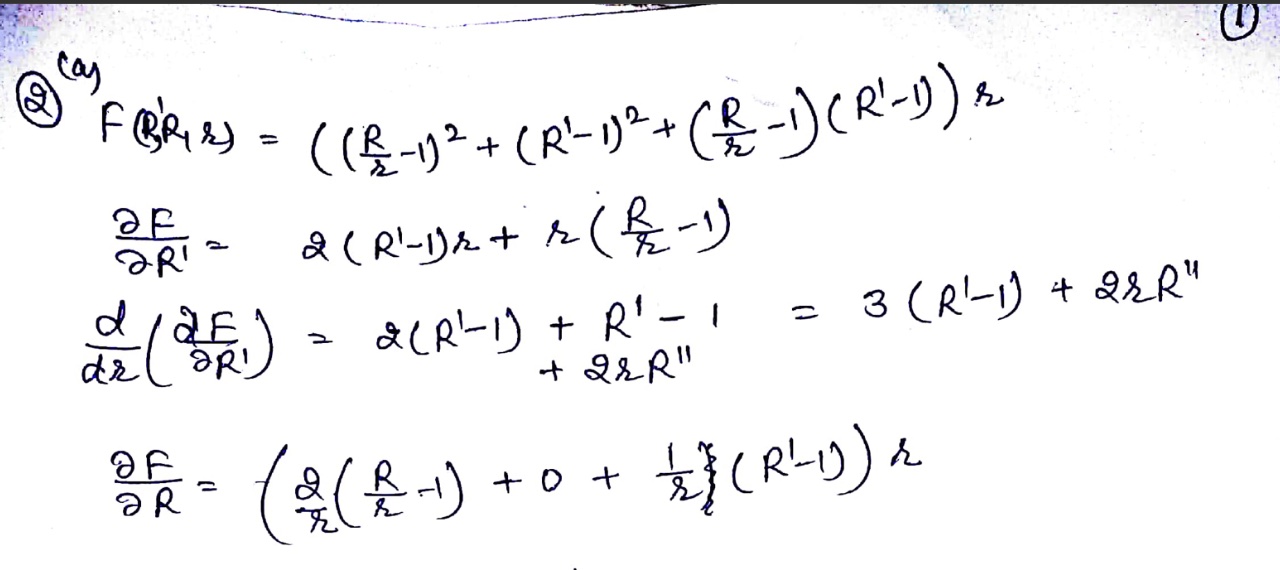 ①
② (a) F(R', R, r) = ((R/r - 1)² + (R' - 1)² + (R/r - 1)(R' - 1)) r
∂F/∂R' = 2(R' - 1)r + r(R/r - 1)
d/dr (∂F/∂R') = 2(R' - 1) + R' - 1 + 2rR'' = 3(R' - 1) + 2rR''
∂F/∂R = (2/r (R/r - 1) + 0 + 1/r (R' - 1)) r